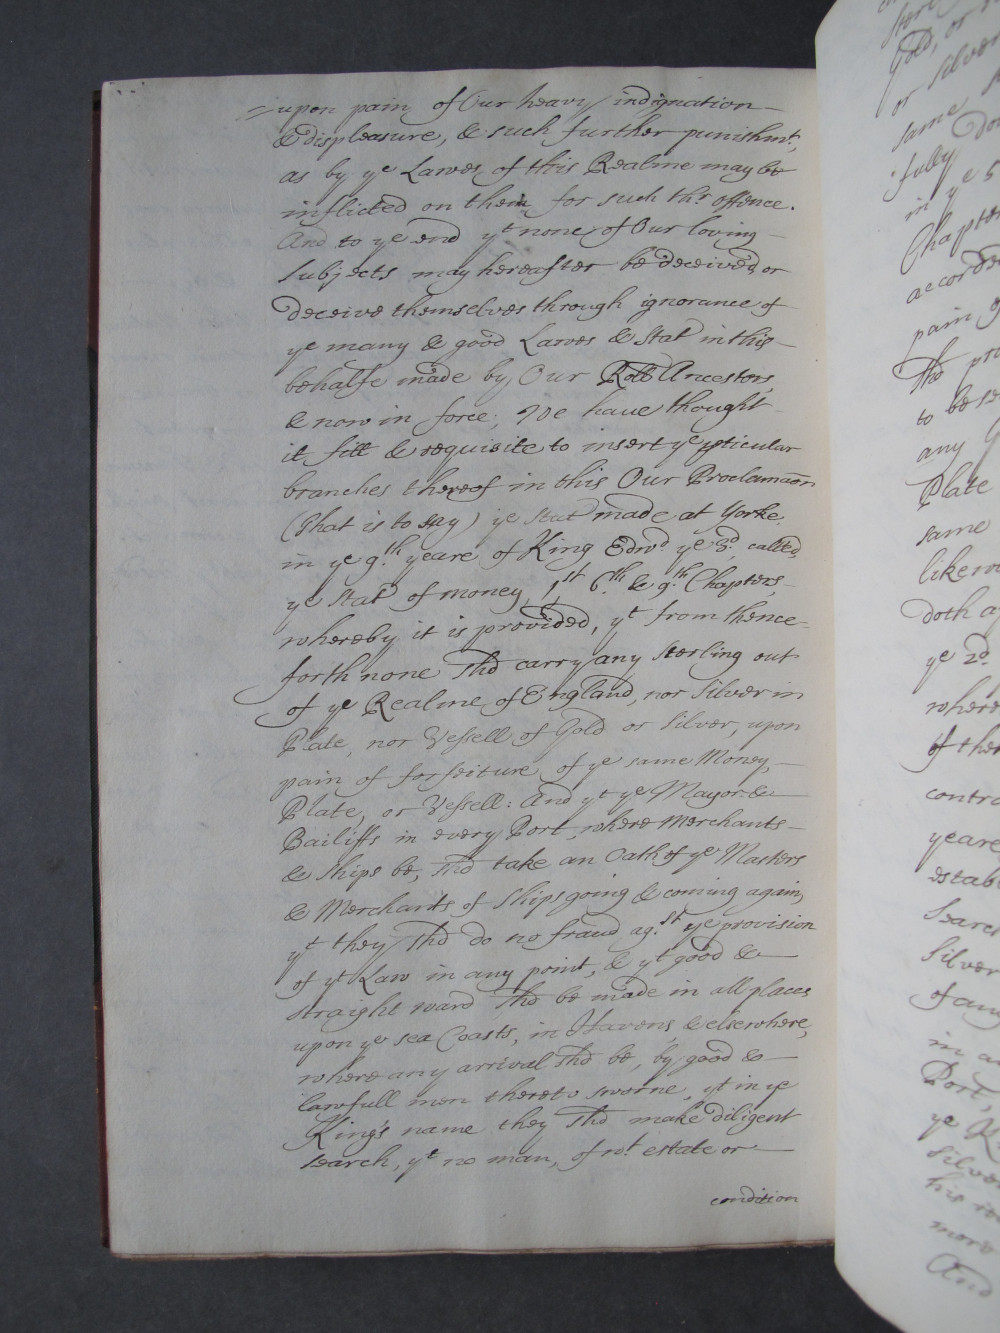 upon pain of Our heavy indignation
& displeasure, & such further punishmt,
as by ye Lawes of this Realme may be
inflicted on them for such thr offence.
And to ye end yt none of Our loving
Subjects may hereafter be deceived or
deceive themselves through ignorance of
ye many & good Lawes & Stat in this
behalfe made by Our Roll Ancestors,
& now in force; We have thought
it fitt & requisite to insert ye pticular
branches thereof in this Our Proclamaōn
(That is to say) ye Stat made at Yorke
in ye 9th yeare of King Edwd ye 3d, called
ye Stat of money 1st 6th & 9th Chapters,
whereby it is provided, yt from thence-
forth none Shd carry any Sterling out
of ye Realme of England, nor Silver in
Plate, nor Vessell of Gold or Silver, upon
pain of forfeiture of ye same Money,
Plate, or Vessell: And yt ye Mayor &
Bailiffs in every Port, where Merchants
& Ships be, shd take an Oath of ye Masters
& Merchants of Ships going & coming again,
yt they Shd do no fraud agst ye provision
of yt Law in any point, & yt good &
straight ward Shd be made in all places
upon ye sea Coasts, in Havens & elsewhere,
where any arrival Shd be, by good &
lawfull men thereto sworne, yt in ye
King's name they Shd make diligent
search, yt no man, of wt estate or
condition
Gold, or
or Silver
same
fully
in ye 5
Chapter
accorded
pain of
The pro
to be se
any G
Plate
same
likewi
doth a
ye 2d
where
of ther
contra
yeare
estab
Search
Silver
of any
in a
Port,
ye K
Silver
his
more
And